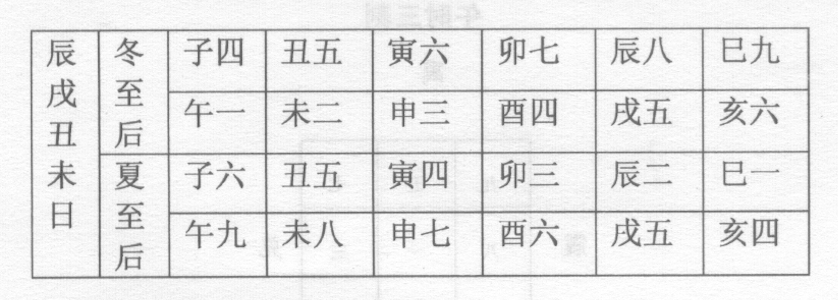 辰戌丑未日
冬至后
子四 丑五 寅六 卯七 辰八 巳九
午一 未二 申三 酉四 戌五 亥六
夏至后
子六 丑五 寅四 卯三 辰二 巳一
午九 未八 申七 酉六 戌五 亥四